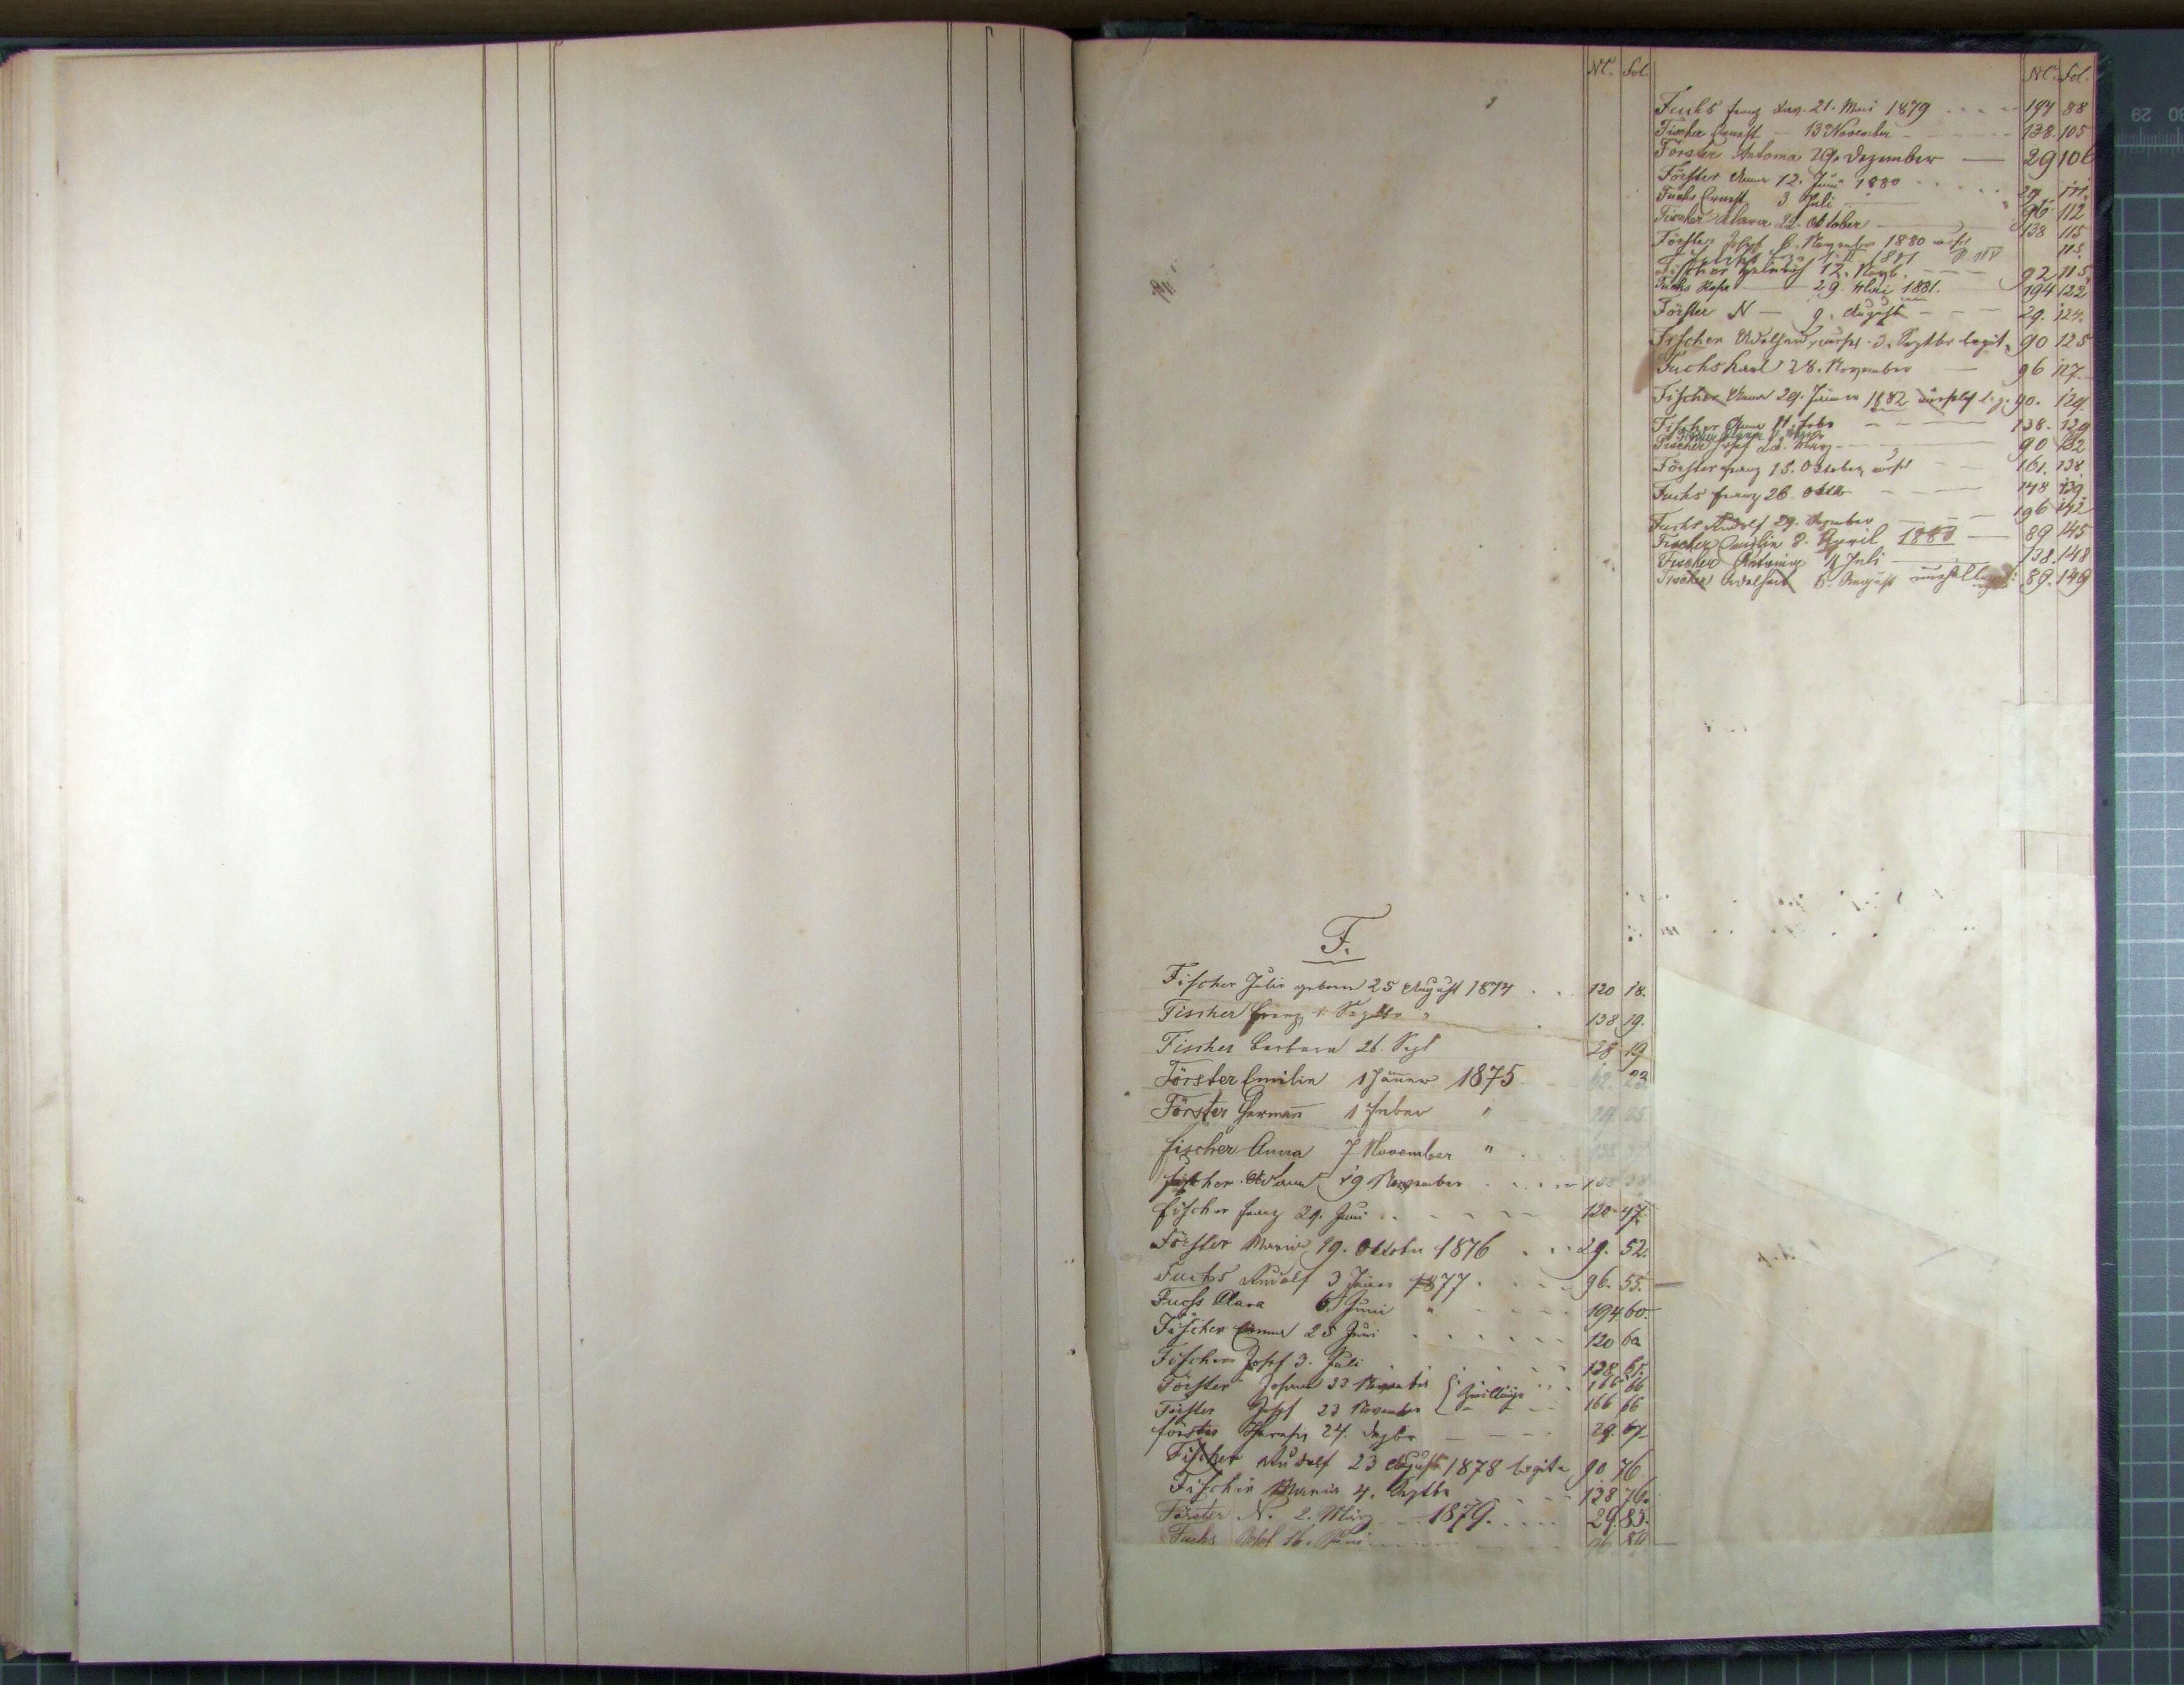 F.
Nc. Fol.
Fischer Julie geboren 25 August 1874 . . 120 18.
Fischer Franz 1. Septbr " . 138 19.
Fischer Barbara 26. Sept 28 19
Förster Emilie 1 Jänner 1875 62. 23
Förster Hermañ 1 Feber "
Fischer Anna 7 November " . .
Fischer 19 November
Fischer Franz 29. Juni 120 47
Förster Maria 19. Oktober 1876 . . . 29. 52.
Fuchs Rudolf 3 Jäner 1877 . . . . 96. 55.
Fuchs Clara 6. Juni " 194 60.
Fischer 25 Juni 120 60
Fischer Josef 3. Juli 138 61.
Förster Johann 23 November Zwillinge 166 66
Förster Josef 23 November 166 66
Förster Theresia 24. Dezbr 29. 67
Fischer Rudolf 23 August 1878 legit. 90 76
Fischer Maria 4. Septbr 138 76.
Förster N. 2. März 1879. 29. 85.
Fuchs 16.
Nc. Fol.
Fuchs Franz Xav. 21. Mai 1879 194 88
Fischer Ernest 13 November 138. 105
Förster Antonia 29. Dezember 29 106
Förster Anna 12. Juni 1880 29 111.
Fuchs Ernest 3 Juli 96 112
Fischer Maria 22. Oktober 138 115
Förster Josef 6. November 1880 115.
Fischer Heinrich 12. Novb. 92 115.
Fuchs Rosa 29. Mai 1881. 194 122
Förster N 9. August 29. 124.
Fischer Adelheid, unehel. 3. Septbr legit. 90 125
Fuchs Karl 28. November 96 127
Fischer Anna 29. Jänner 1882 unehelich l. g. 90. 129.
Fischer Anna 11. Feber 138. 129
Fischer Josef 22. März 90 132
Förster Franz 15. Oktober unehl 161. 138
Fuchs Franz 26. Oktbr 148 139
Fuchs Rudolf 29. Dezember 196 142
Fischer Emilie 8. April 1883 89 145
Fischer Antonie 4 Juli 138. 148
Fischer Adelheid 6. August unehel legit: 89. 149